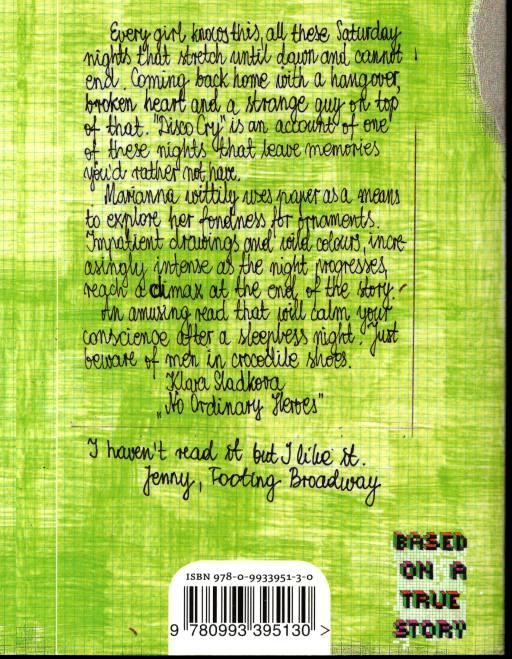 Every girl knows this, all these Saturday
nights that stretch until dawn and cannot
end. Coming back home with a hangover,
broken heart and a strange guy on top
of that. "Disco Cry" is an account of one
of these nights that leave memories
you'd rather not have.
Marianna wittily uses paper as a means
to explore her fondness for ornaments.
Impatient drawings and wild colours, incre-
asingly intense as the night progresses,
reach a climax at the end of the story.
An amusing read that will calm your
conscience after a sleepless night. Just
beware of men in crocodile shoes.
Klara Sladkova
"No Ordinary Heroes"
I haven't read it but I like it.
Jenny, Tooting Broadway
BASED
ON A
TRUE
STORY
ISBN 978-0-9933951-3-0
9 780993 395130 >